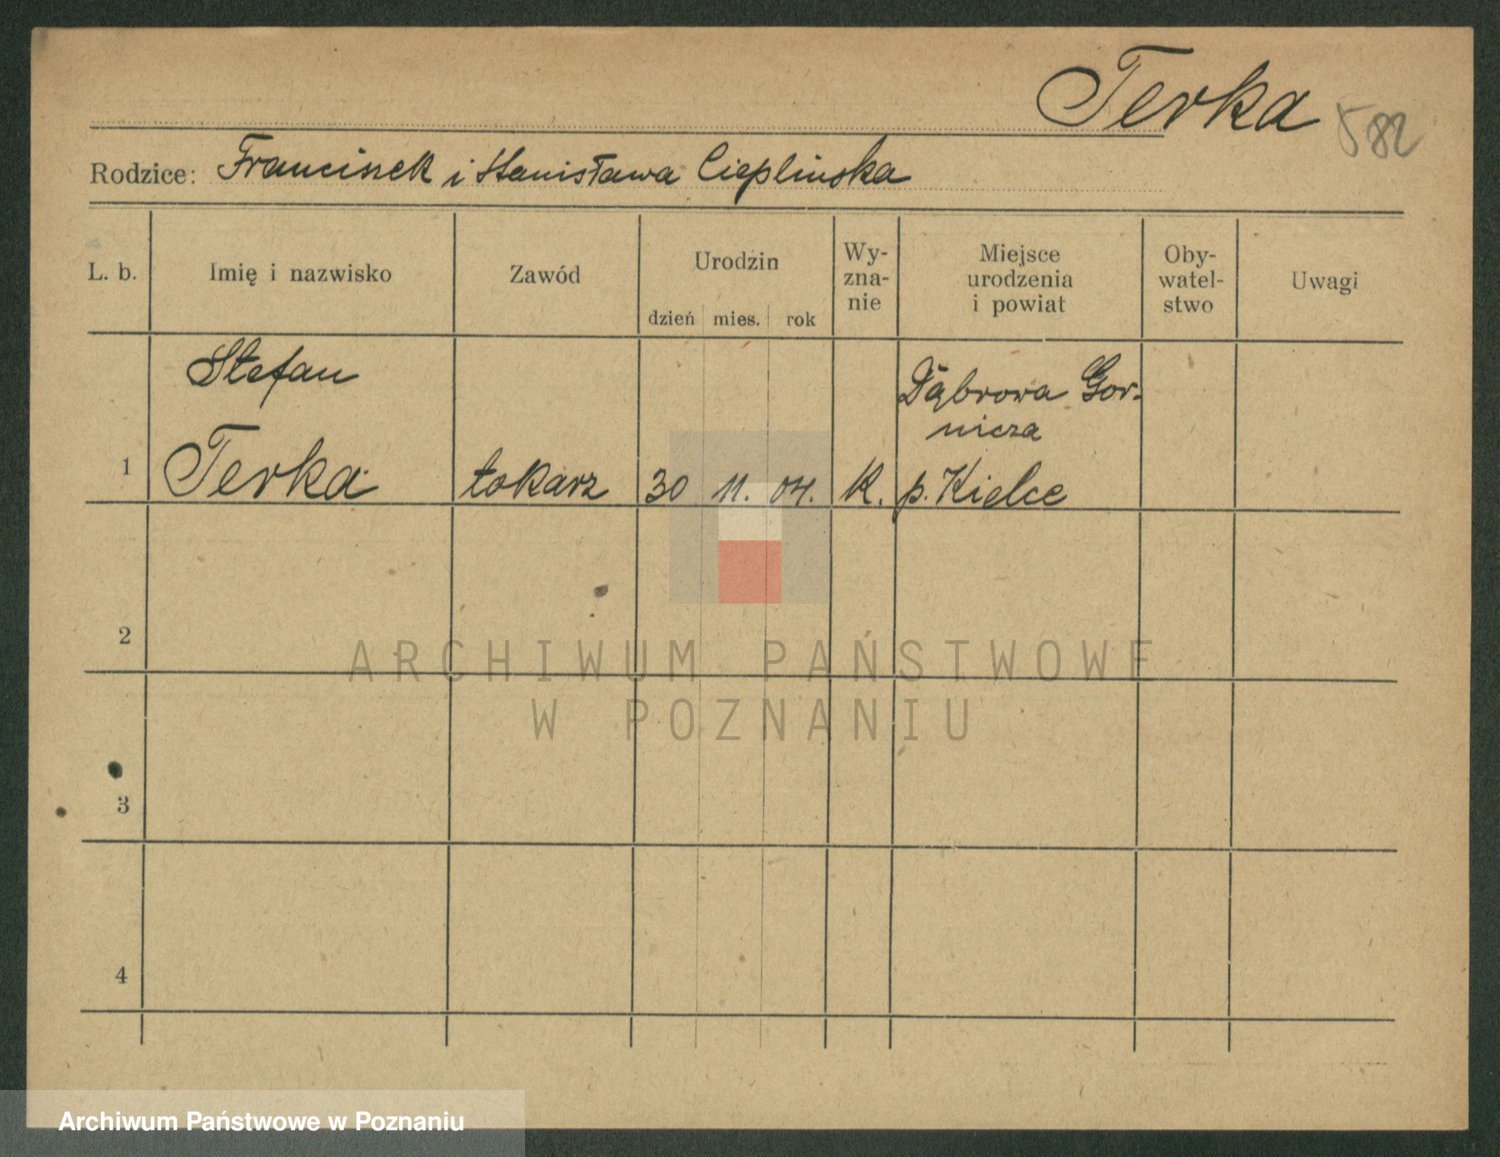 Terka 582
Rodzice: Franciszek i Stanisława Cieplinska
L. b. Imię i nazwisko Zawód Urodzin Wy-zna-nie Miejsce urodzenia i powiat Oby-watel-stwo Uwagi
dzień mies. rok
Stefan
Dąbrowa Gor-
nicza
1 Terka tokarz 30 11. 04. K. p. Kielce
2
ARCHIWUM PAŃSTWOWE
W POZNANIU
3
4
Archiwum Państwowe w Poznaniu